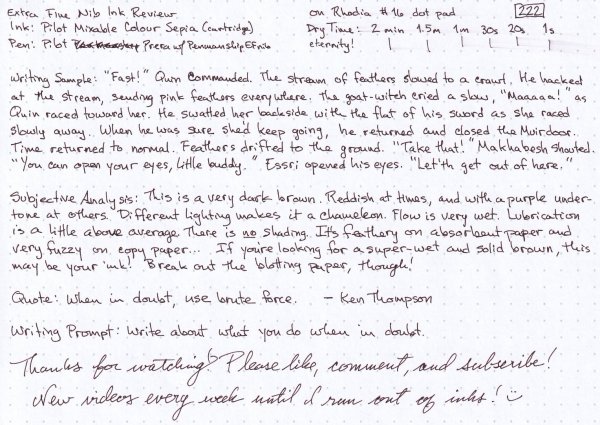 Extra Fine Nib Ink Review on Rhodia #16 dot pad 222
Ink: Pilot Mixable Colour Sepia (cartridge) Dry Time: 2 min 1.5m 1m 30s 20s 1s
Pen: Pilot Prera w/ Penmanship EF nib eternity!
Writing Sample: "Fast!" Quin commanded. The stream of feathers slowed to a crawl. He hacked
at the stream, sending pink feathers everywhere. The goat-witch cried a slow, "Maaaaa!" as
Quin raced toward her. He swatted her backside with the flat of his sword as she raced
slowly away. When he was sure she'd keep going, he returned and closed the Muirdoor.
Time returned to normal. Feathers drifted to the ground. "Take that!" Makhabesh shouted.
"You can open your eyes, little buddy." Essri opened his eyes. "Let'th get out of here."
Subjective Analysis: This is a very dark brown. Reddish at times, and with a purple under-
tone at others. Different lighting makes it a chameleon. Flow is very wet. Lubrication
is a little above average. There is no shading. It's feathery on absorbent paper and
very fuzzy on copy paper... If you're looking for a super-wet and solid brown, this
may be your ink! Break out the blotting paper, though!
Quote: When in doubt, use brute force. - Ken Thompson
Writing Prompt: Write about what you do when in doubt.
Thanks for watching! Please like, comment, and subscribe!
New videos every week until I run out of inks!